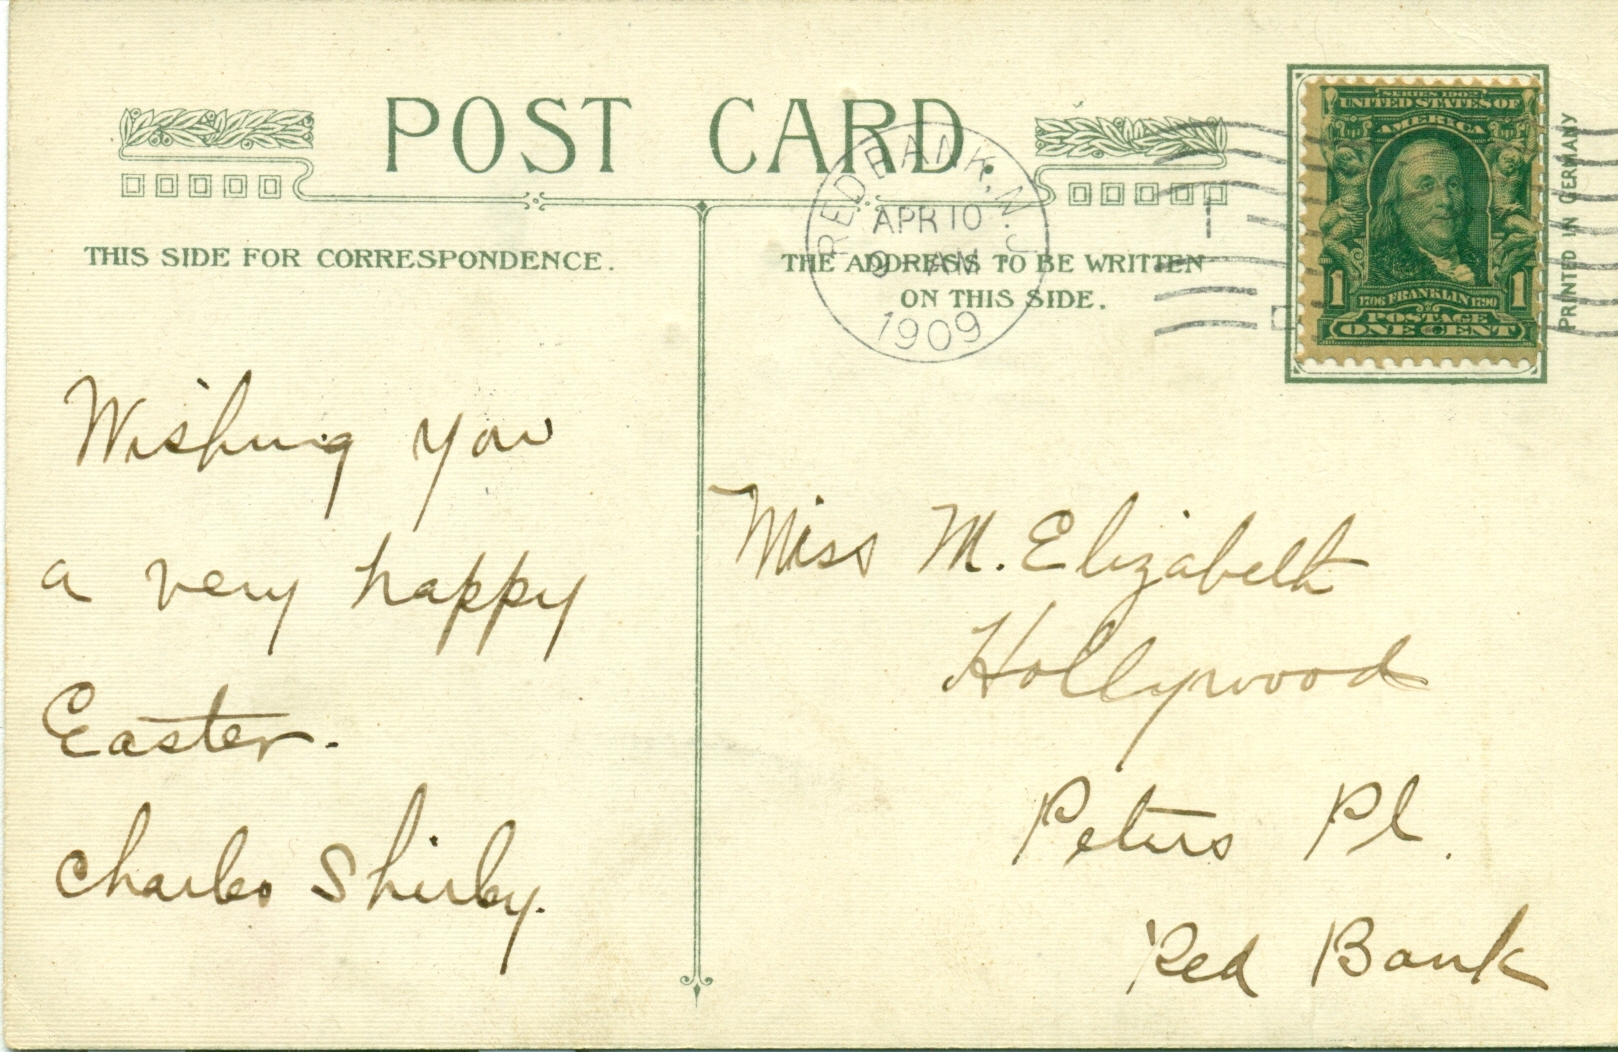 POST CARD
THIS SIDE FOR CORRESPONDENCE.
THE ADDRESS TO BE WRITTEN
ON THIS SIDE.
RED BANK, N.J.
APR 10
9 AM
1909
1
SERIES 1902
UNITED STATES OF
AMERICA
1 1
1706 FRANKLIN 1790
POSTAGE
ONE CENT
PRINTED IN GERMANY
Wishing you
a very happy
Easter.
Charles Shirley.
Miss M. Elizabeth
Hollywood
Peters Pl.
Red Bank